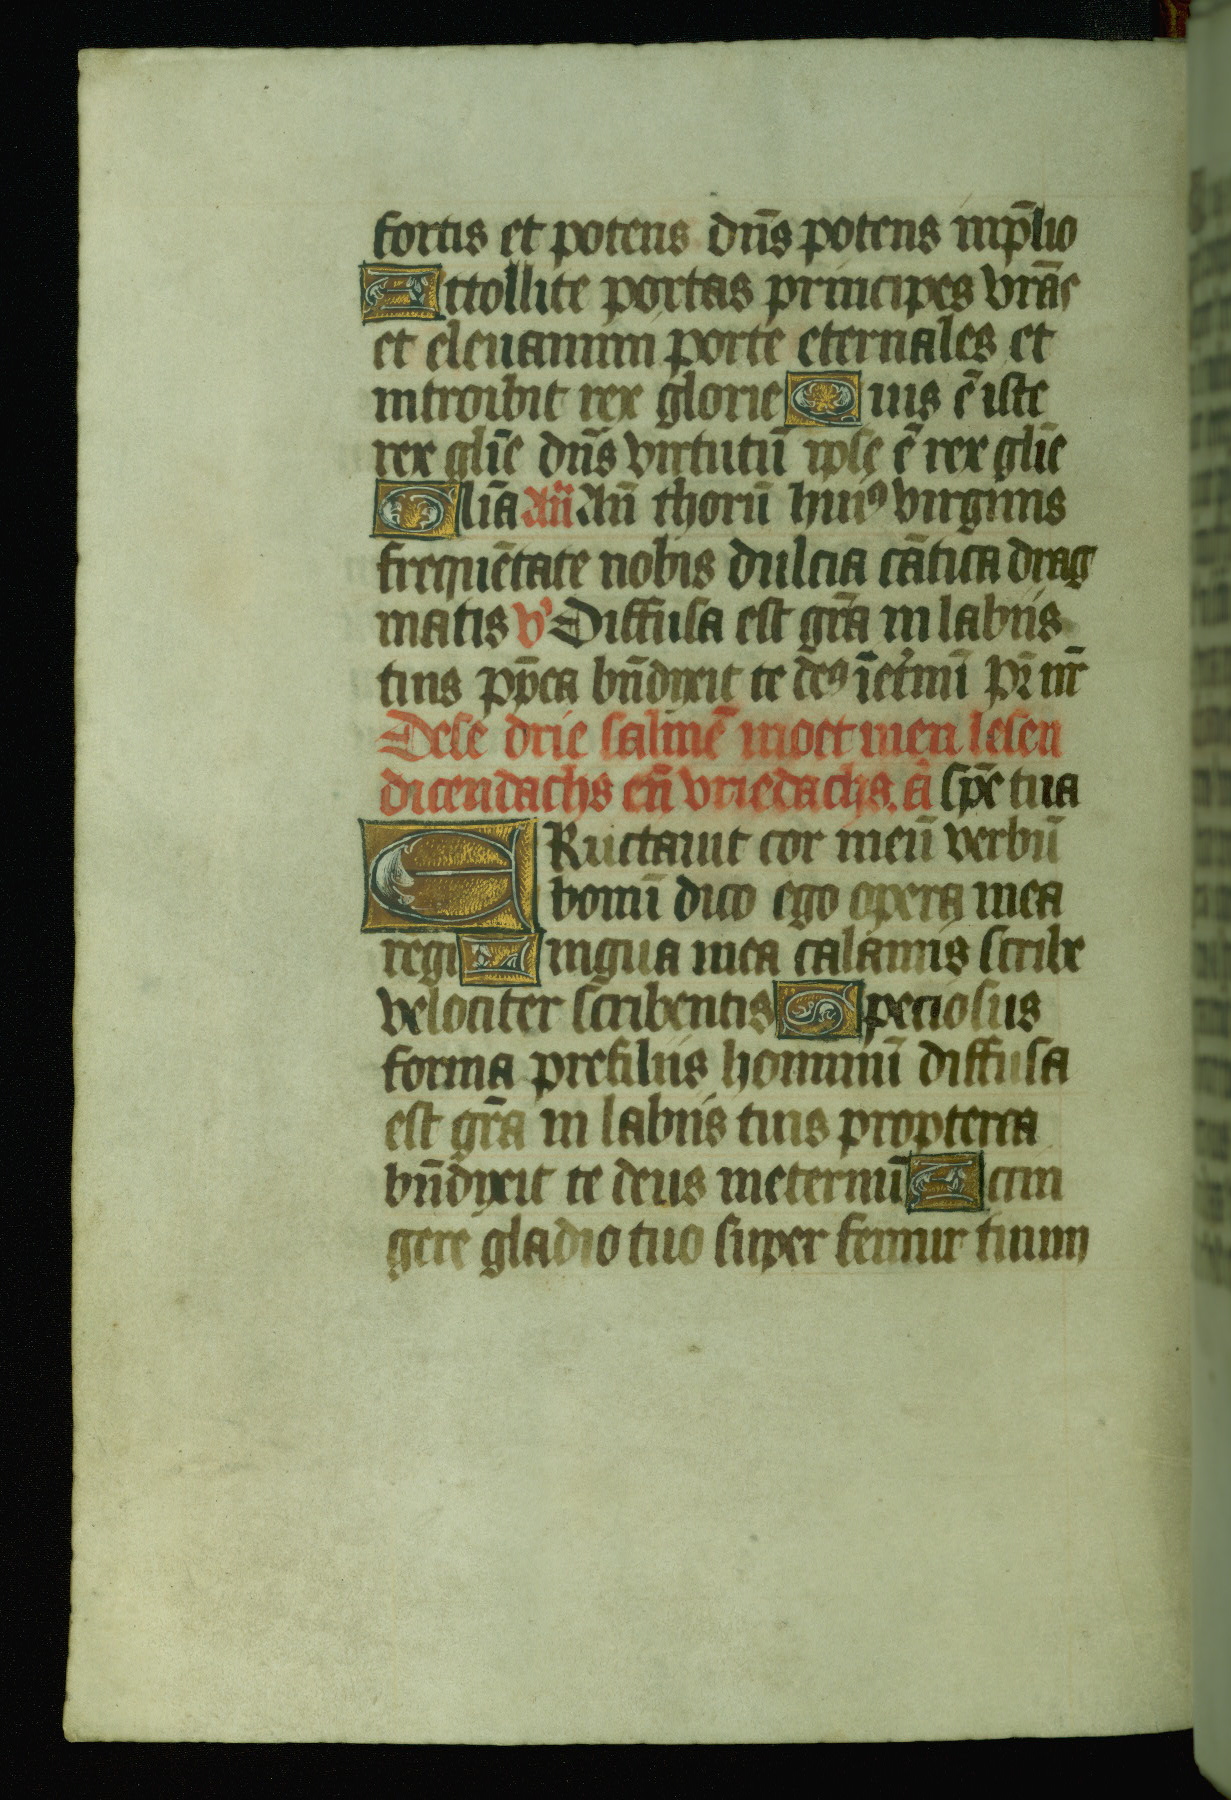 fortis et potens dn̄s potens inp̄lio
Attollite portas principes vrās
et eleuamini porte eternales et
introibit rex glorie Quis ē iste
rex glīe dn̄s virtutū ipse ē rex glīe
Glīa An̄ An̄ thorū huiꝰ virginis
frequētate nobis dulcia cātica drag
matis v̾ Diffusa est grā in labiis
tuis pp̄ea bn̄dixit te deꝰ īet̾nū pr̄ nr̄
Dese drie salmē moet men lesen
dicendachs en̄ vriedachs. ā sp̄e tua
ERuctauit cor meū verbū
bonū dico ego opera mea
regi Lingua mea calamus scribe
velociter scribentis Speciosus
forma prefiliis hominū diffusa
est grā in labiis tuis propterea
bn̄dixit te deus ineternū Accin
gere gladio tuo super femur tuum